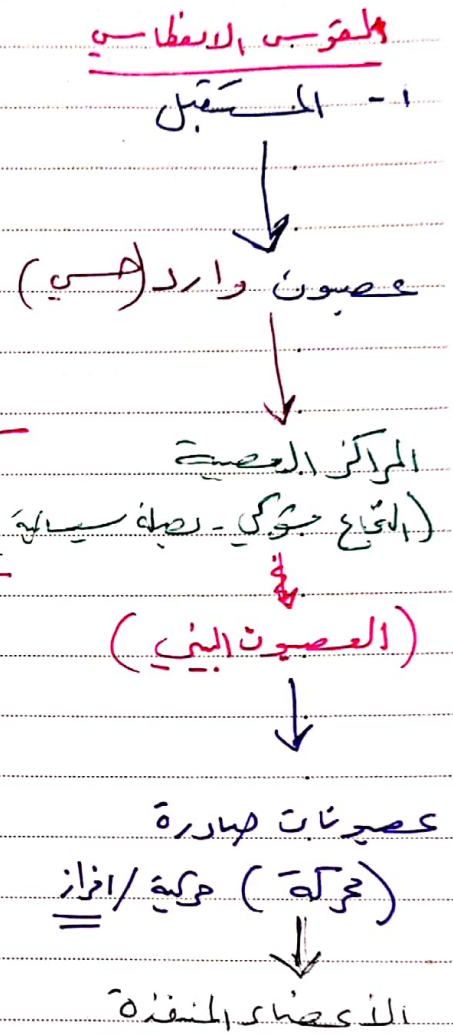 القوس الانعكاسي
١- المستقبل
عصبون وارد (حسي)
المراكز العصبية
(النخاع شوكي - بصلة سيسائية
(العصبون البيني)
عصبونات صادرة
(محركة) حركية / افراز
الأعضاء المنفذة